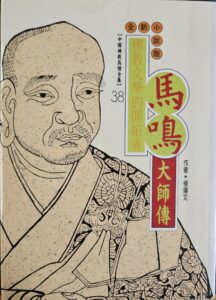 全新小說版
馬鳴
大師傳
佛教文學的開拓者
【中國佛教高僧全集】
38
作者•侯傳文